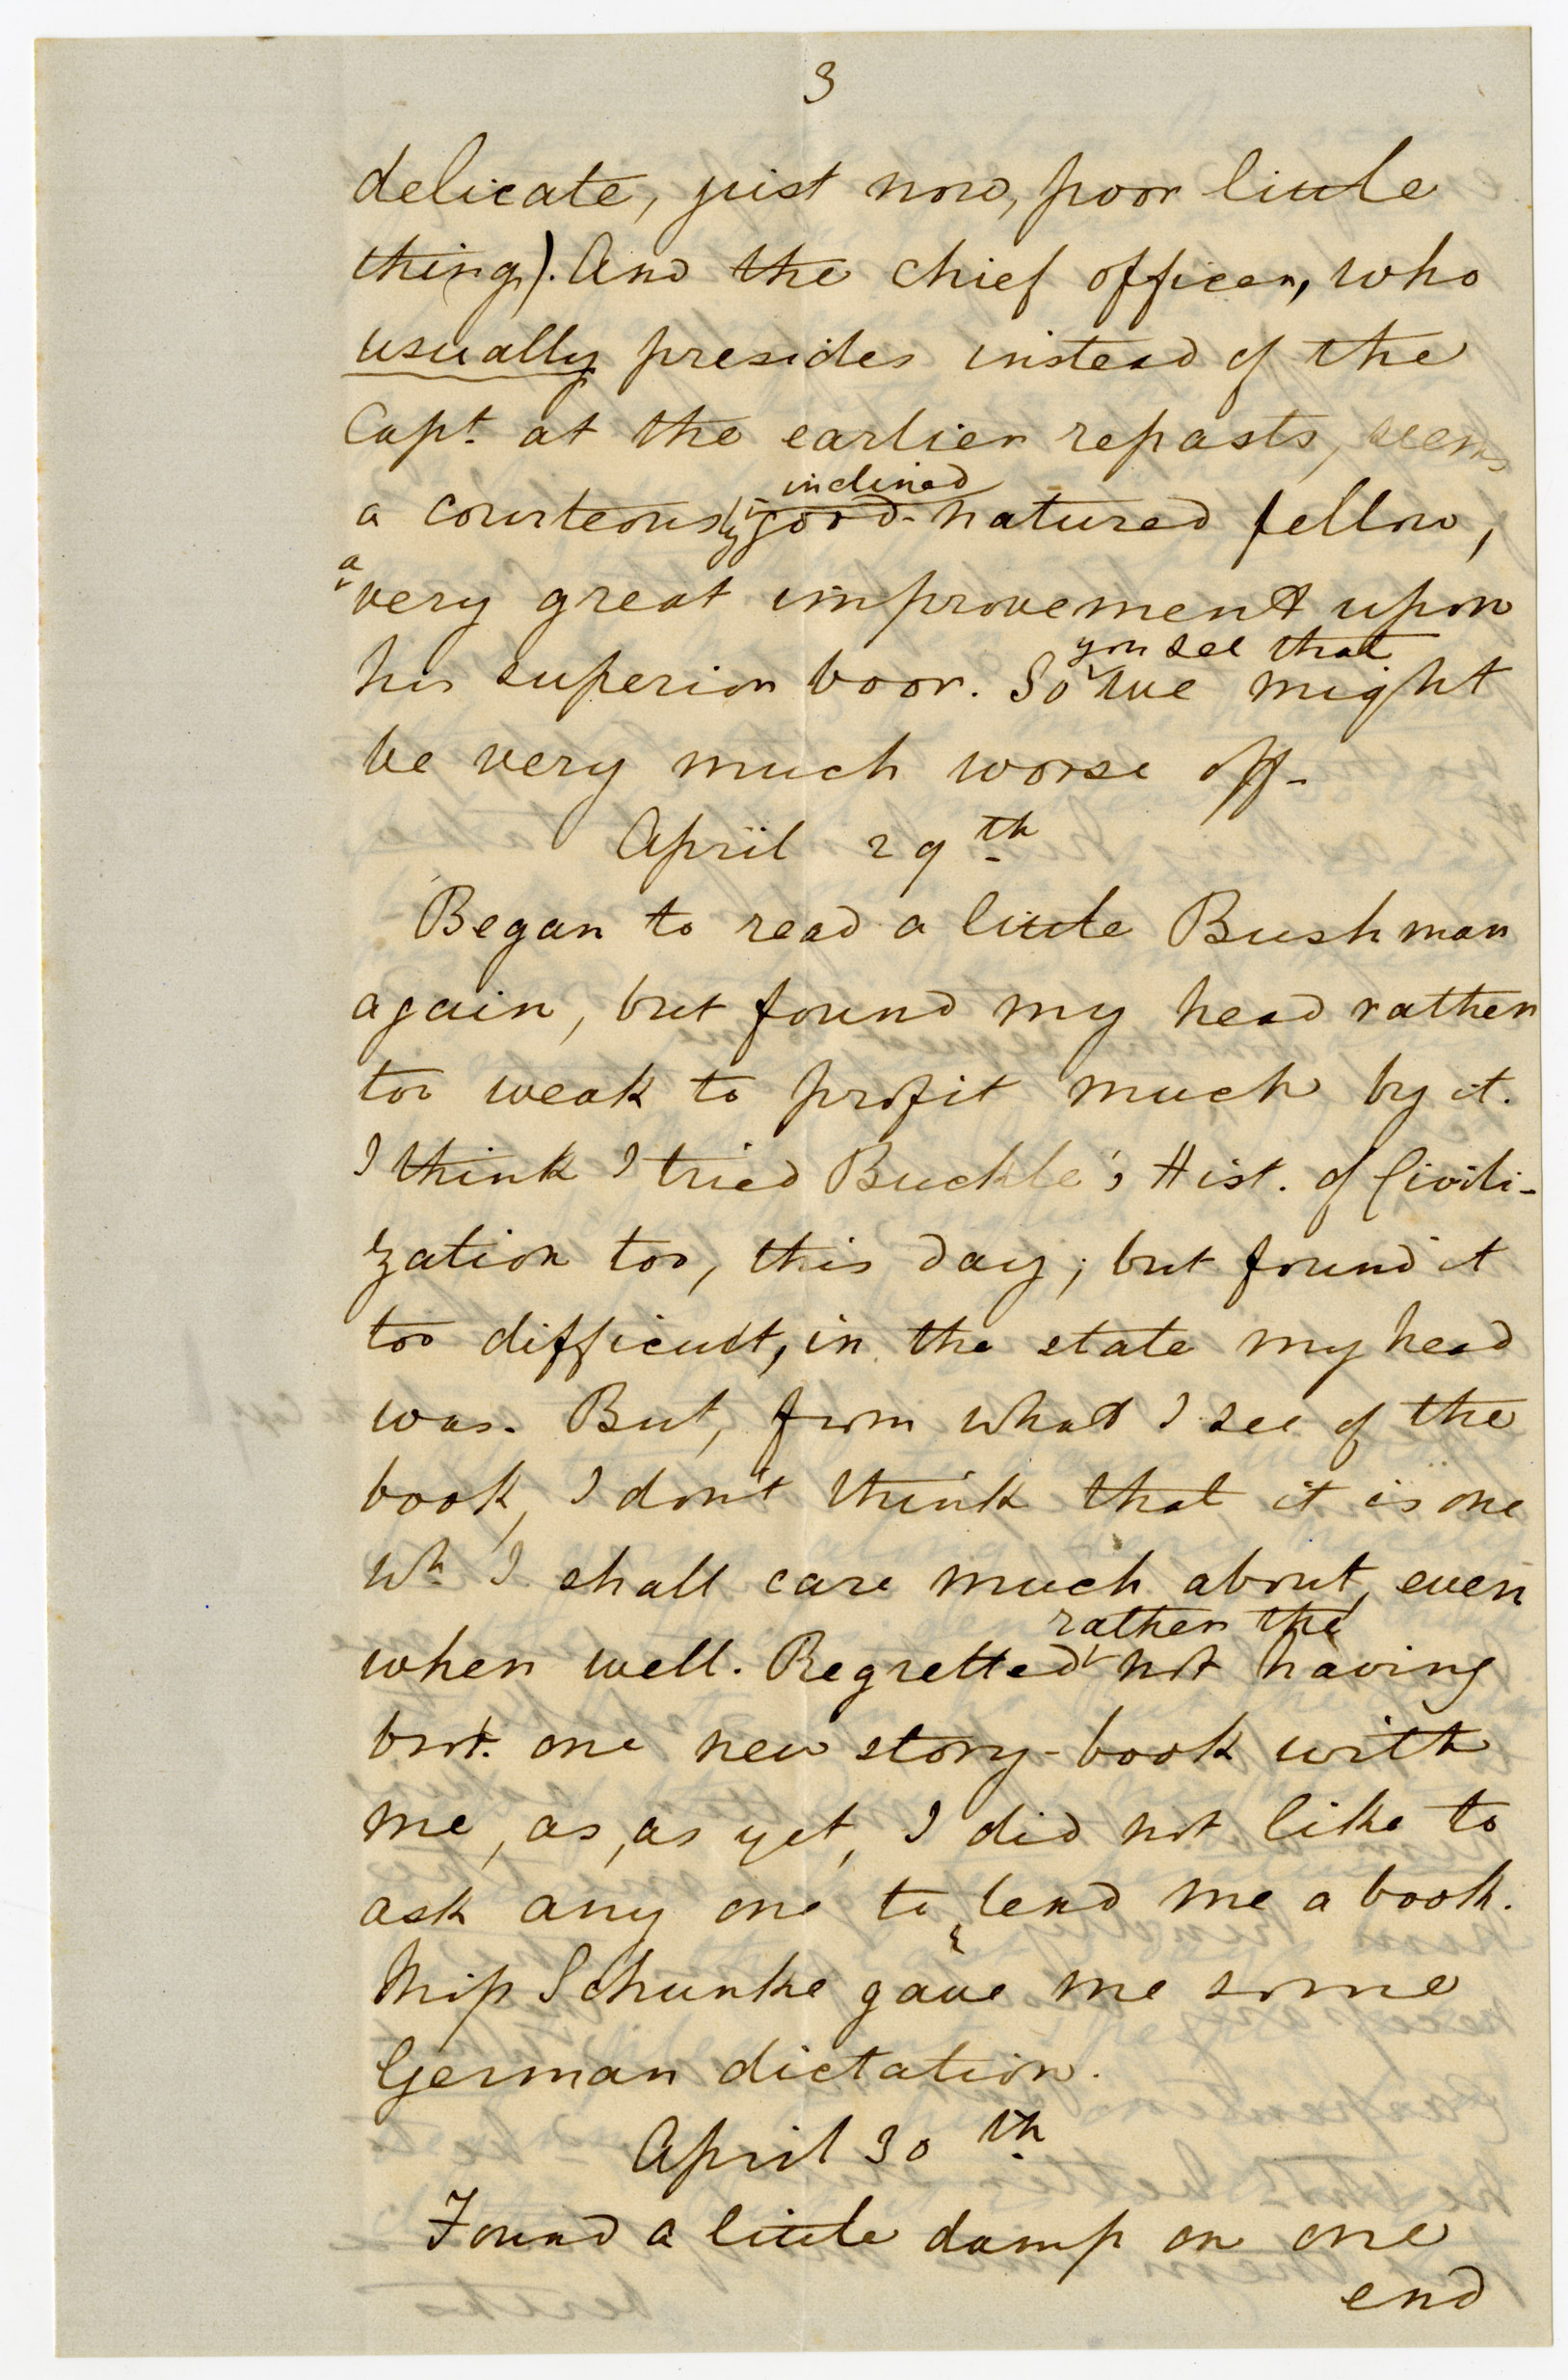 3
delicate, just now, poor little
thing). And the chief officer, who
usually presides instead of the
Capt. at the earlier repasts, seems
inclined
a courteously good-natured fellow,
a
very great improvement upon
you see that
his superior boor. So we might
be very much worse off.
April 29th
Began to read a little Bushman
again, but found my head rather
too weak to profit much by it.
I think I tried Buckle's Hist. of Civili-
zation too, this day; but found it
too difficult, in the state my head
was. But, from what I see of the
book, I don't think that it is one
wh. I shall care much about, even
rather the
when well. Regretted not having
brt. one new story-book with
me, as, as yet, I did not like to
ask any one to lend me a book.
Miss Schunke gave me some
German dictation.
April 30th
Found a little damp on one
end